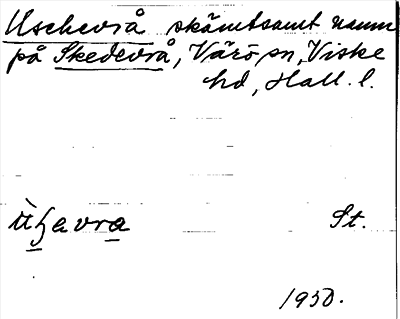 Uschevrå skämtsamt namn
på Skedevrå, Värö sn, Viske
hd, Hall. l.
St.
1930.